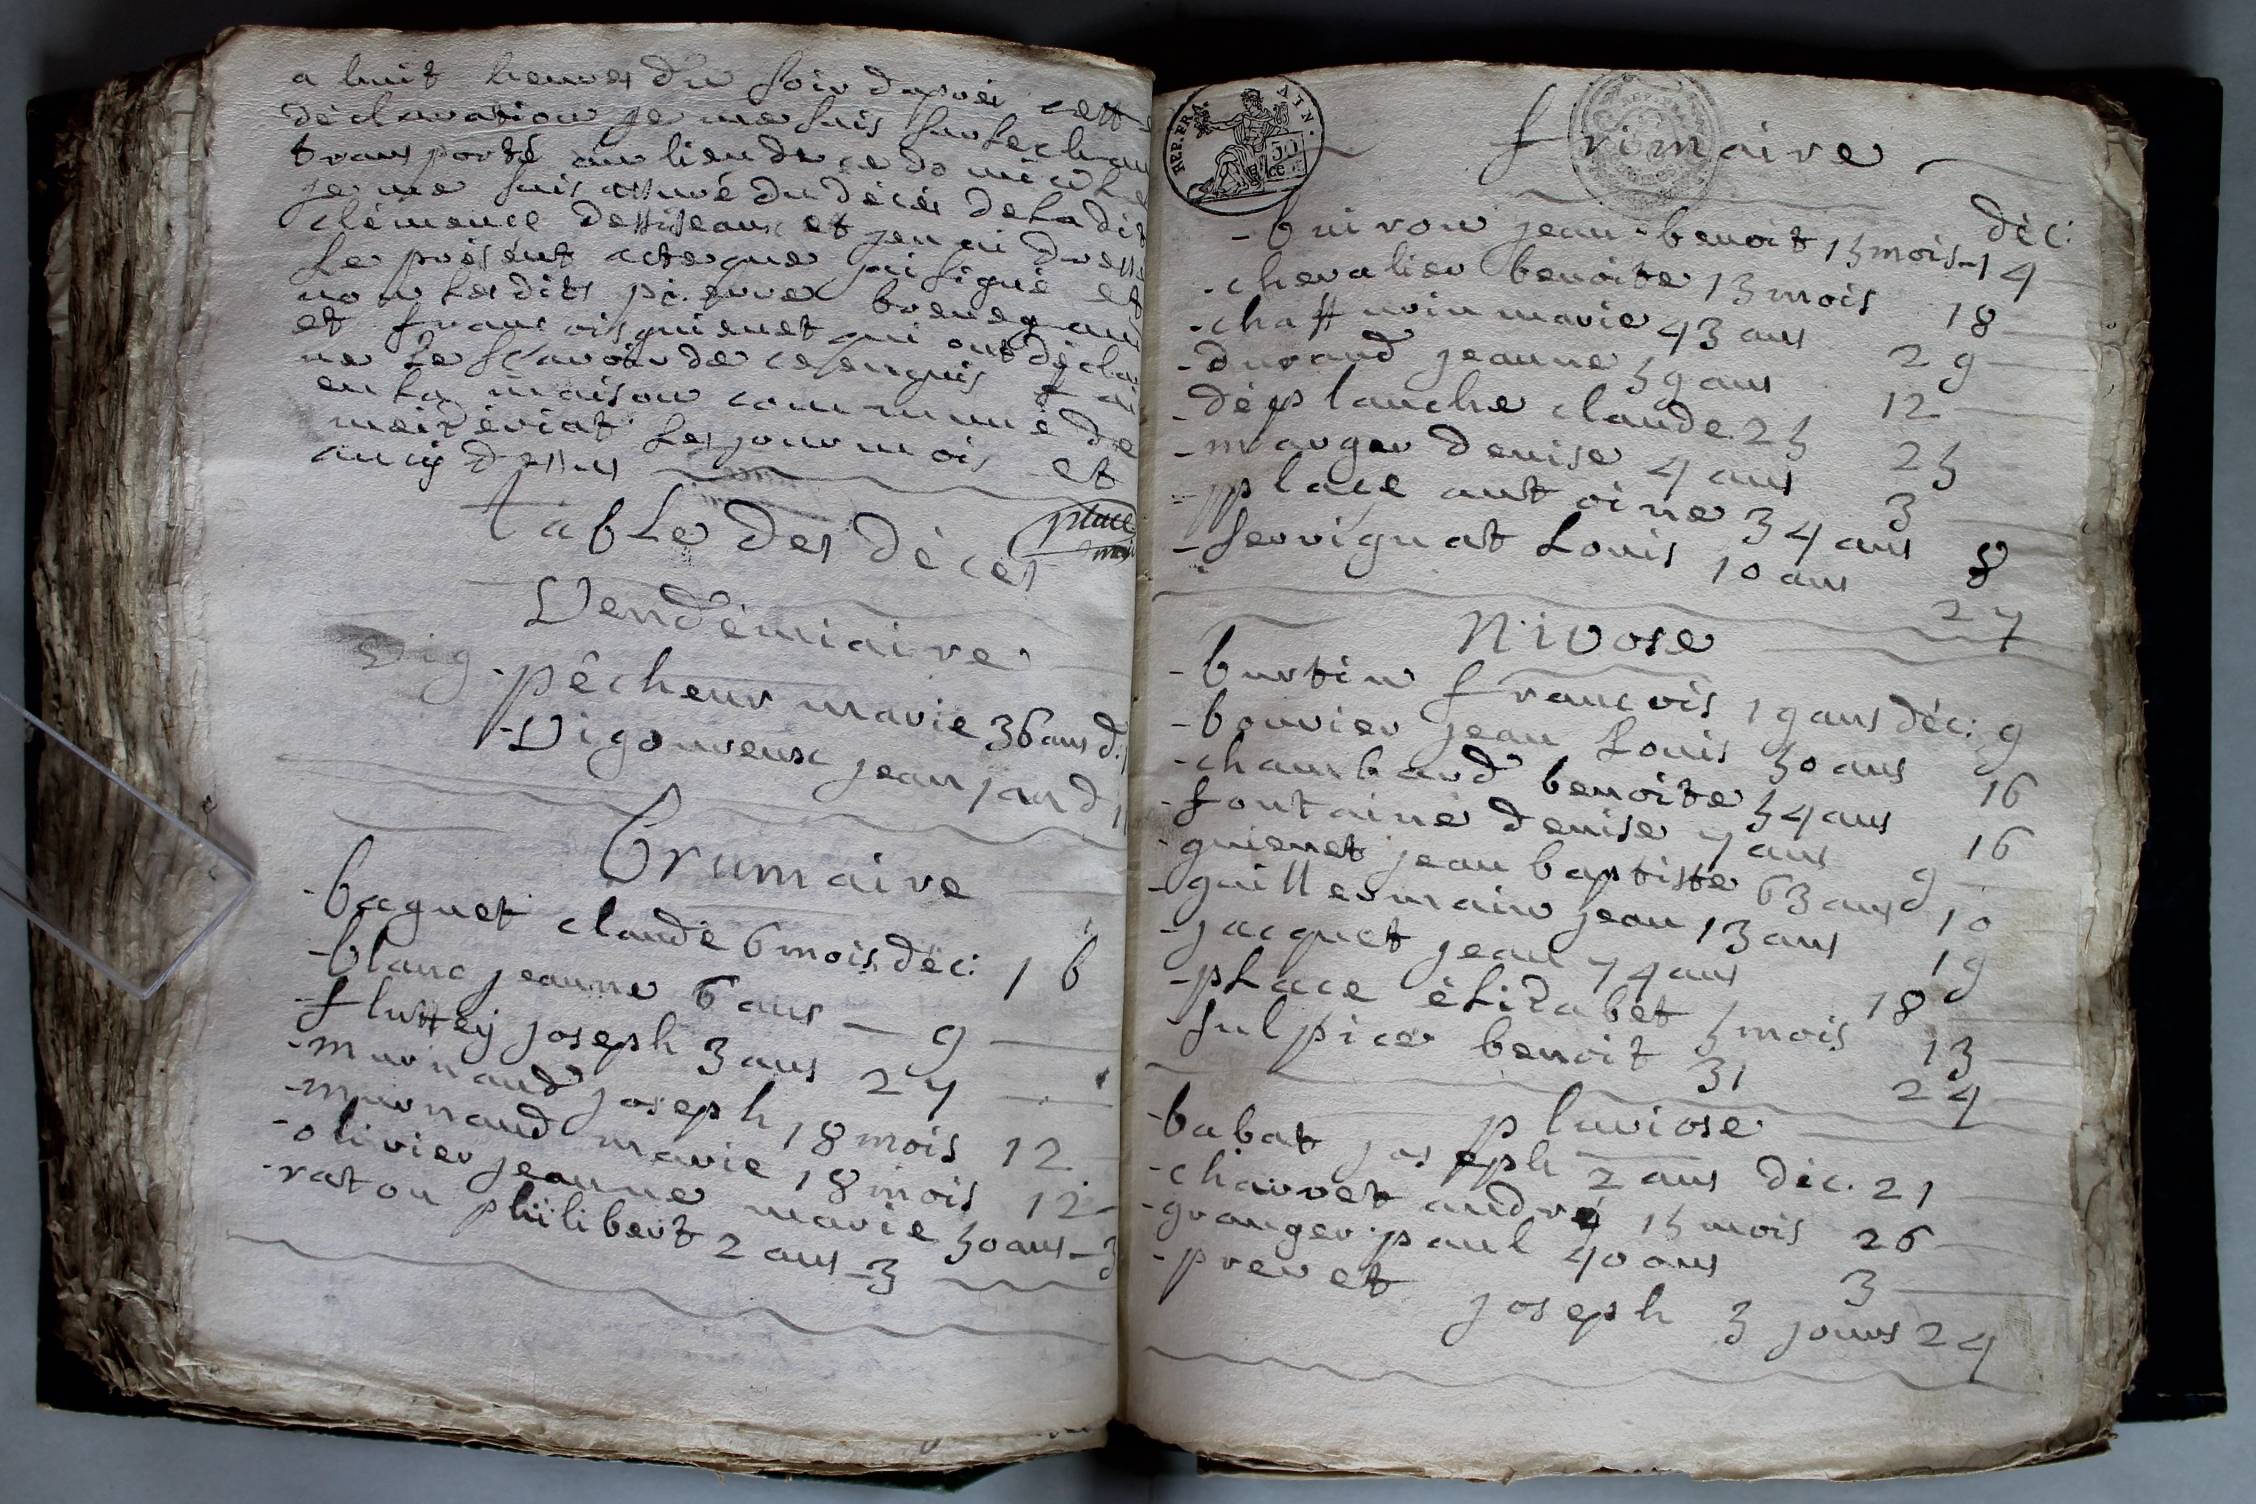 a huit heures du soir daprèi cette
déclaration je me suis sur le cham
transporté au lieu de ce domicile
je me suis assuré du décés de la dit
clémence dessiseaux et jen ai dressé
le présent acte que jai signé et
non lesdits pierre
et francois guienet qui ont déclar
ne le scavoir de ce enquis fai
en la maison commune de
meizériat les jour mois et
an cy dessus
place
table des décès
Vendémiaire
pêcheur marie 36 ans d:
-Vigoureux jean 1 an d
brumaire
-baguet claude 6 mois déc: 16
-blanc jeanne 6 ans — 9
-fluttey joseph 3 ans 27
-murnaud joseph 18 mois 12
-murnaud marie 18 mois 12-
-olivier jeanne marie 50 ans -3
-raton philibert 2 ans -3
REP. FRA. AIN.
frimaire
déc:
-buiron jean-benoit 15 mois-14
-chevalier benoite 13 mois 18
-chaffurin marie 43 ans 29
-durand jeanne 59 ans 12
-déplanche claude 25 25
-marger denise 4 ans 3
-place antoine 34 ans 8
-servignat Louis 10 ans 27
Nivose
-burtin francois 19 ans déc: 9
-bouvier jean Louis 50 ans 16
-chambard benoite 54 ans 16
-fontaine denise 7 ans 9
-guienet jean baptiste 63 ans 10
-guillermain jean 13 ans 19
-jacquet jean 74 ans 18
-place élizabet 5 mois 13
-sulpice benoit 31 24
pluviose
-babat joseph 2 ans déc. 21
-charvet andré 15 mois 26
-granger paul 40 ans 3
-prevet joseph 3 jours 24